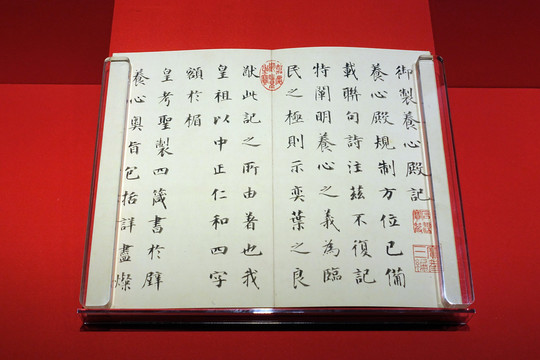 御製養心殿記
養心殿規制方位已備
載聯句詩注茲不復記
特闡明養心之義為臨
民之極則示奕葉之良
猷此記之所由著也我
皇祖以中正仁和四字
額於楣
皇考聖製四箴書於壁
養心奧旨包括詳盡燦